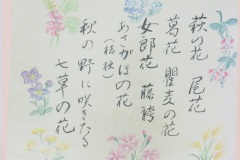 萩の花 尾花
葛花 瞿麦の花
女郎花 藤袴
あさがほの花
(桔梗)
秋の野に咲きたる
七草の花